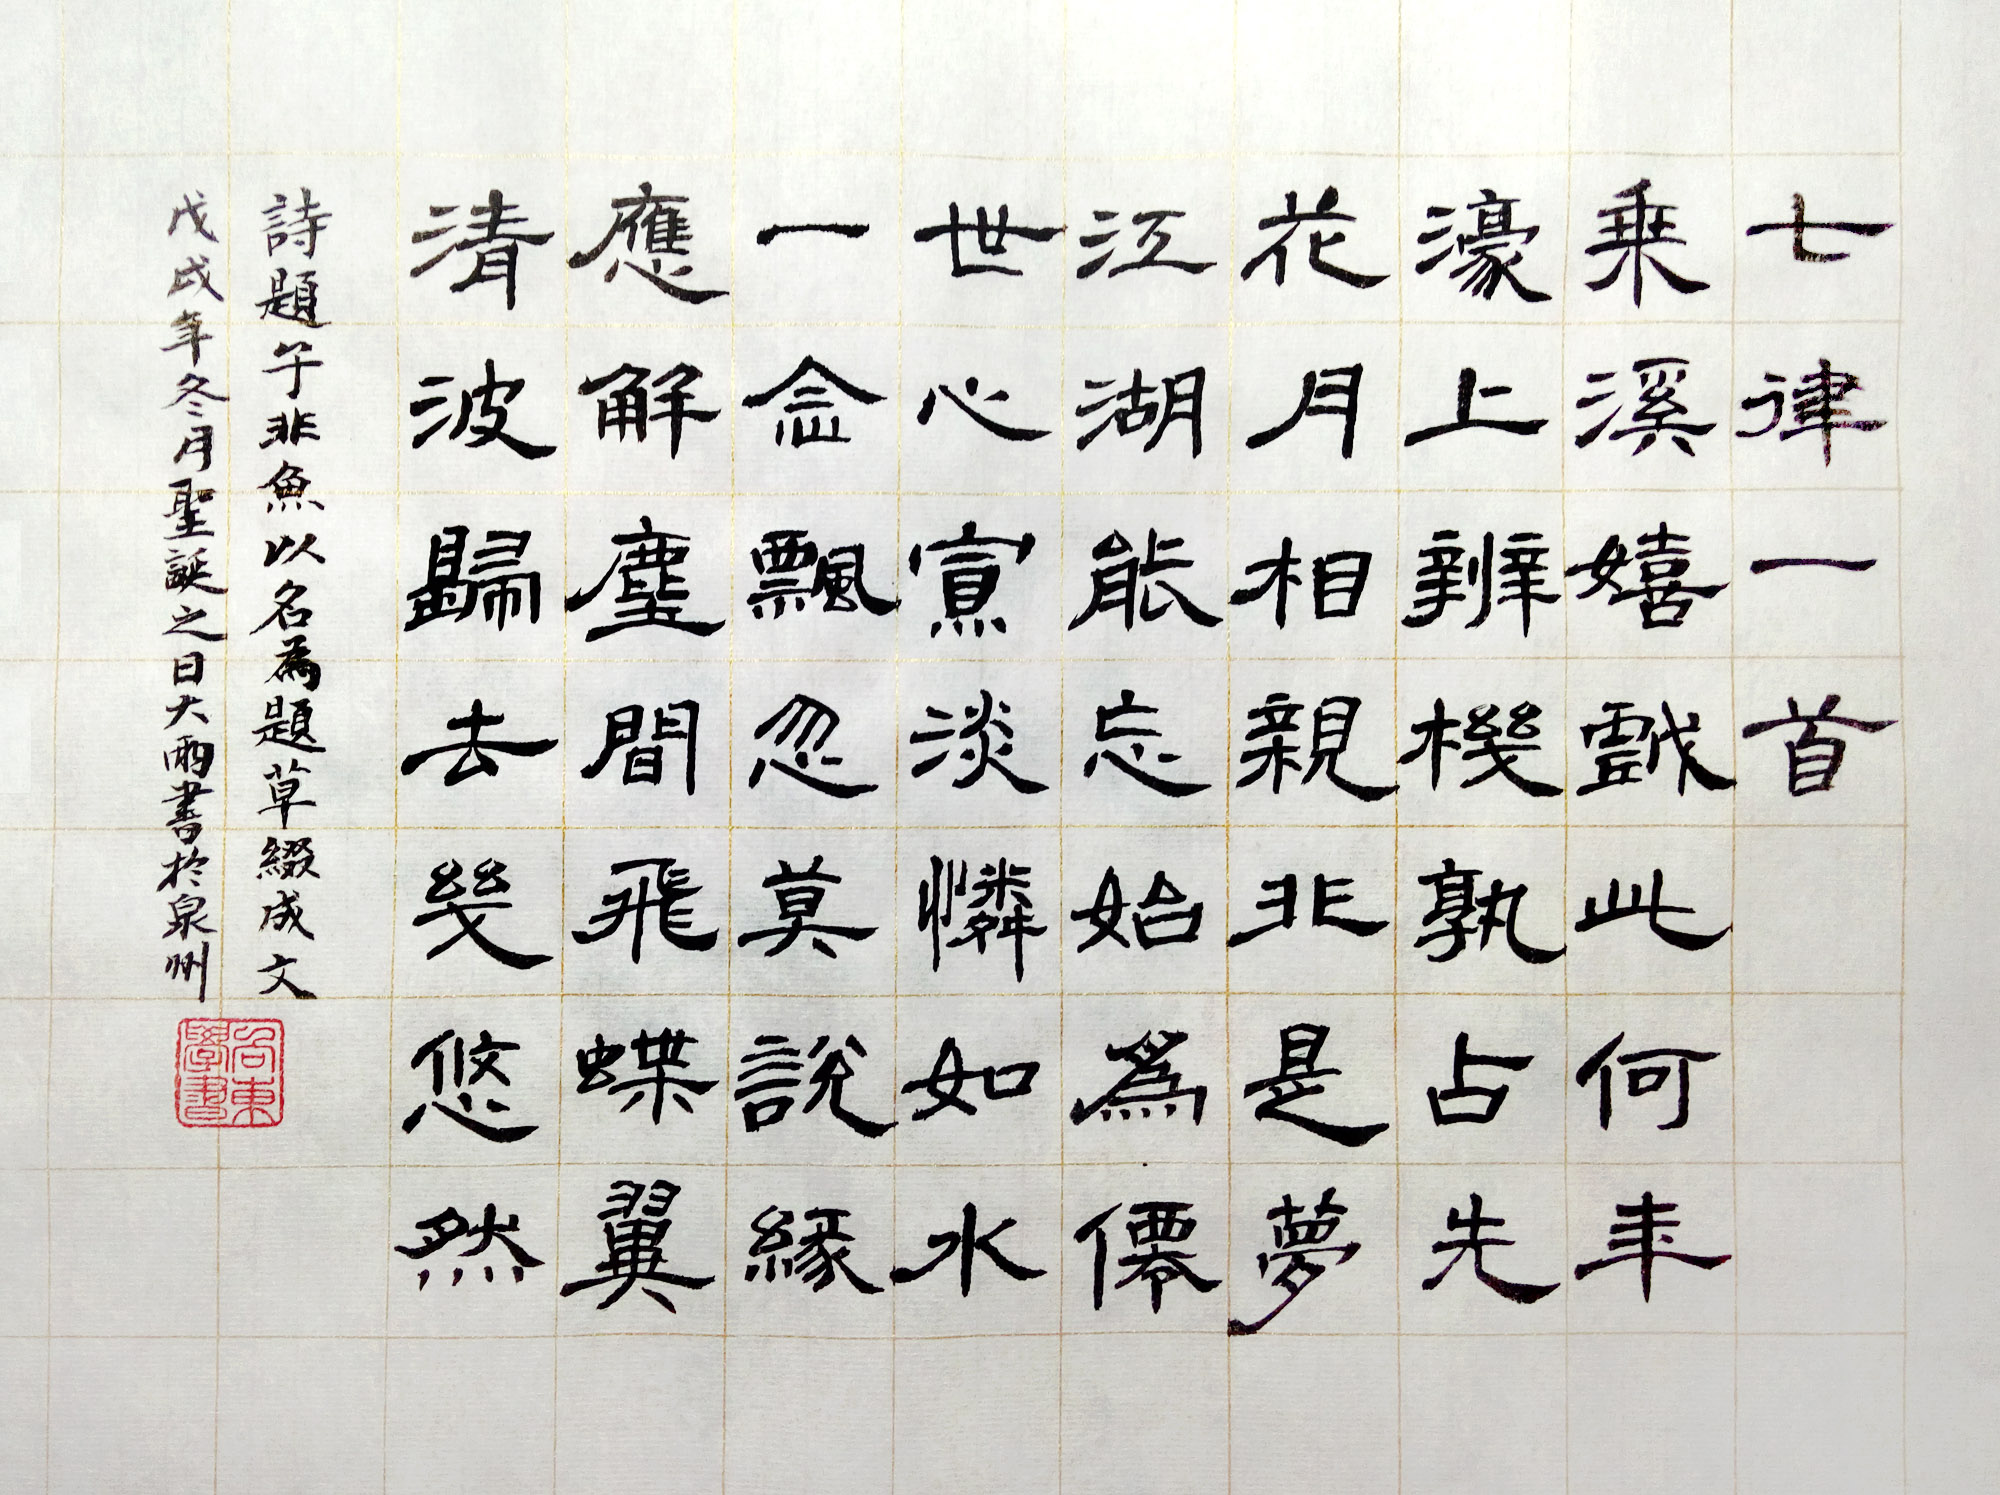 七律一首
乗溪嬉戲此何年
濠上辨機孰占先
花月相親非是夢
江湖能忘始為僊
世心寡淡憐如水
一念飄忽莫說緣
應解塵間飛蝶翼
清波歸去幾悠然
詩題子非魚以名為題草綴成文
戊戌年冬月聖誕之日大雨書於泉州
尚東學書